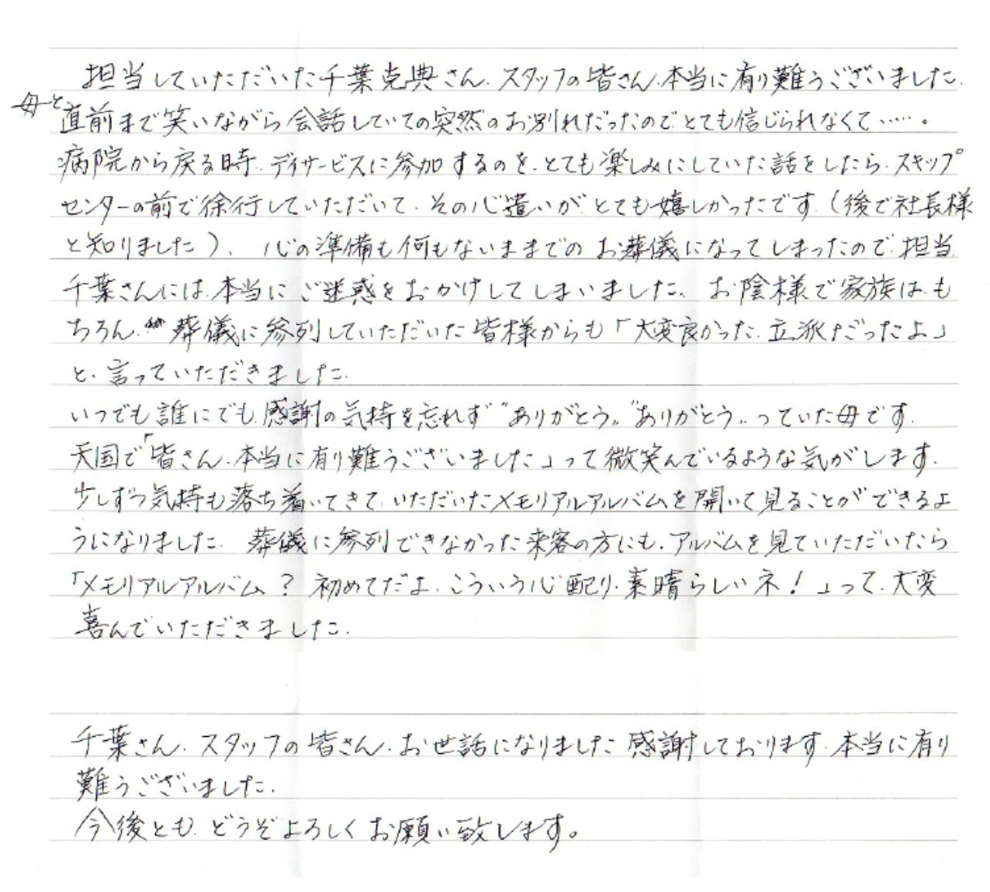 担当していただいた千葉克典さん.スタッフの皆さん.本当に有り難うございました.
母と
直前まで笑いながら会話していての突然のお別れだったので.とても信じられなくて……。
病院から戻る時.デイサービスに参加するのを.とても楽しみにしていた話をしたら.スキップ
センターの前で徐行していただいて.その心遣いが.とても嬉しかったです.(後で社長様
と知りました).心の準備も何もないままでのお葬儀になってしまったので.担当
千葉さんには.本当にご迷惑をおかけしてしまいました.お陰様で家族は.も
ちろん.葬儀に参列していただいた皆様からも「大変良かった.立派だったよ」
と.言っていただきました.
いつでも誰にでも.感謝の気持を忘れず"ありがとう〟"ありがとう〟っていた母です.
天国で「皆さん.本当に有り難うございました」って微笑んでいるような気がします.
少しずつ気持も落ち着いてきて.いただいたメモリアルアルバムを開いて見ることができるよ
うになりました.葬儀に参列できなかった来客の方にも.アルバムを見ていただいたら
「メモリアルアルバム?初めてだよ.こういう心配り.素晴らしいネ!」って.大変
喜んでいただきました.
千葉さん.スタッフの皆さん.お世話になりました.感謝しております.本当に有り
難うございました.
今後とも.どうぞよろしくお願い致します。